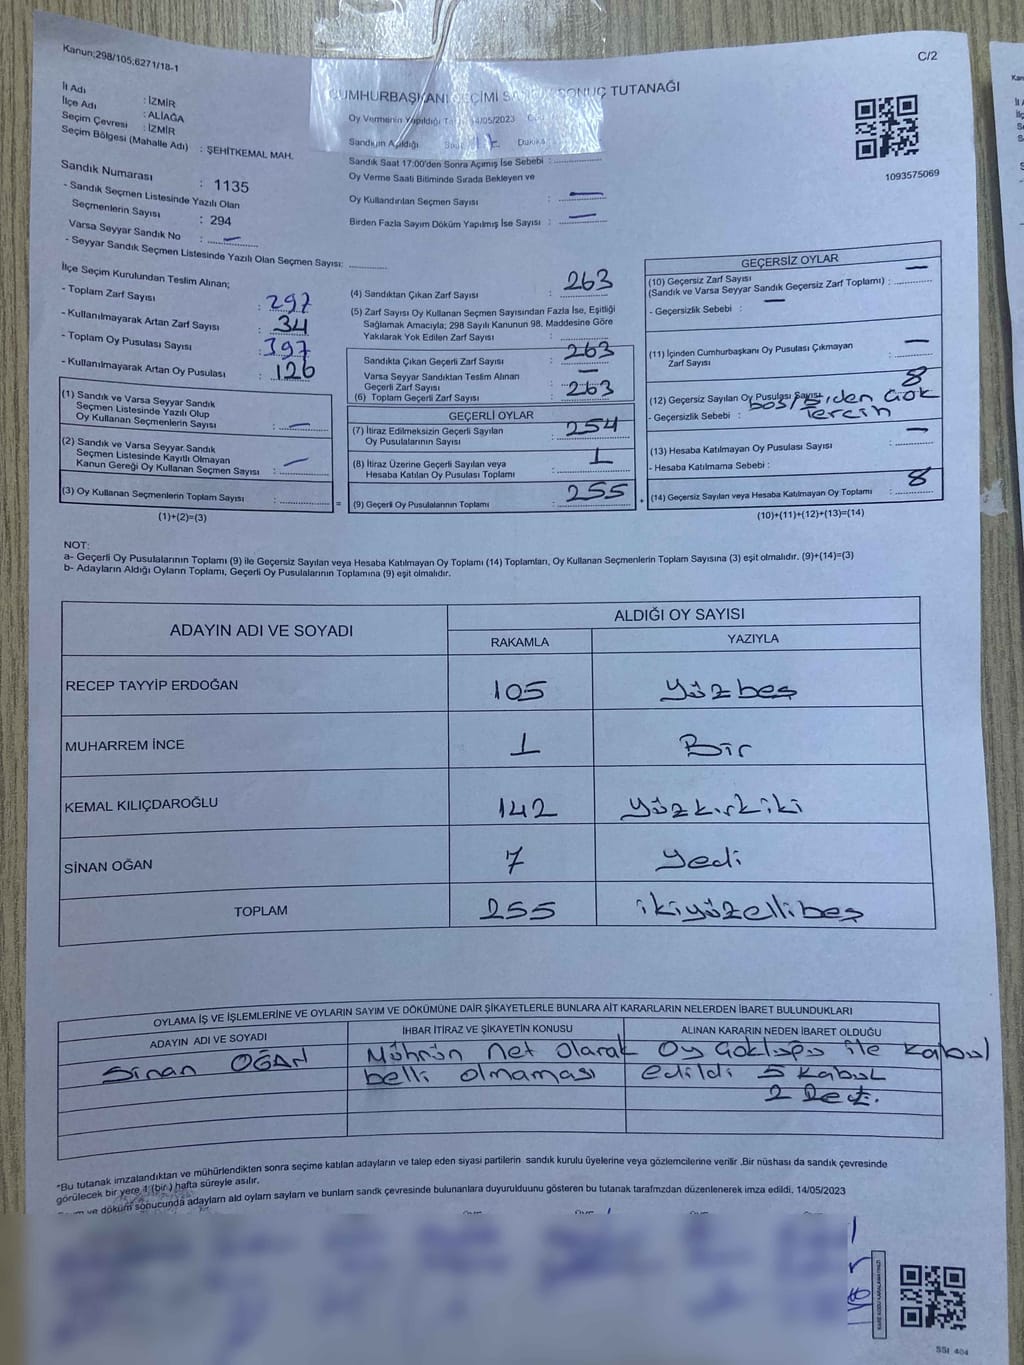 Kanun;298/105,6271/18-1
C/2
CUMHURBAŞKANI SEÇİMİ SANDIK SONUÇ TUTANAĞI
İl Adı : İZMİR
İlçe Adı : ALİAĞA
Seçim Çevresi : İZMİR
Seçim Bölgesi (Mahalle Adı) : ŞEHİTKEMAL MAH.
Oy Vermenin Yapıldığı 14/05/2023
Sandığın Açıldığı Dakika
Sandık Saat 17:00'den Sonra Açılmış İse Sebebi :
Oy Verme Saati Bitiminde Sırada Bekleyen ve
Oy Kullandırılan Seçmen Sayısı : —
Birden Fazla Sayım Döküm Yapılmış İse Sayısı : —
1093575069
Sandık Numarası : 1135
- Sandık Seçmen Listesinde Yazılı Olan
Seçmenlerin Sayısı : 294
Varsa Seyyar Sandık No : —
- Seyyar Sandık Seçmen Listesinde Yazılı Olan Seçmen Sayısı:
İlçe Seçim Kurulundan Teslim Alınan;
- Toplam Zarf Sayısı : 297
- Kullanılmayarak Artan Zarf Sayısı : 34
- Toplam Oy Pusulası Sayısı : 397
- Kullanılmayarak Artan Oy Pusulası : 126
(1) Sandık ve Varsa Seyyar Sandık
Seçmen Listesinde Yazılı Olup
Oy Kullanan Seçmenlerin Sayısı : —
(2) Sandık ve Varsa Seyyar Sandık
Seçmen Listesinde Kayıtlı Olmayan
Kanun Gereği Oy Kullanan Seçmen Sayısı : —
(3) Oy Kullanan Seçmenlerin Toplam Sayısı : =
(1)+(2)=(3)
(4) Sandıktan Çıkan Zarf Sayısı : 263
(5) Zarf Sayısı Oy Kullanan Seçmen Sayısından Fazla İse, Eşitliği
Sağlamak Amacıyla; 298 Sayılı Kanunun 98. Maddesine Göre
Yakılarak Yok Edilen Zarf Sayısı :
Sandıkta Çıkan Geçerli Zarf Sayısı : 263
Varsa Seyyar Sandıktan Teslim Alınan
Geçerli Zarf Sayısı : —
(6) Toplam Geçerli Zarf Sayısı : 263
GEÇERLİ OYLAR
(7) İtiraz Edilmeksizin Geçerli Sayılan
Oy Pusulalarının Sayısı : 254
(8) İtiraz Üzerine Geçerli Sayılan veya
Hesaba Katılan Oy Pusulası Toplamı : 1
(9) Geçerli Oy Pusulalarının Toplamı : 255 +
GEÇERSİZ OYLAR
(10) Geçersiz Zarf Sayısı
(Sandık ve Varsa Seyyar Sandık Geçersiz Zarf Toplamı) : —
- Geçersizlik Sebebi : —
(11) İçinden Cumhurbaşkanı Oy Pusulası Çıkmayan
Zarf Sayısı : —
(12) Geçersiz Sayılan Oy Pusulası Sayısı 8
- Geçersizlik Sebebi : boş/Birden Çok
tercih
(13) Hesaba Katılmayan Oy Pusulası Sayısı : —
- Hesaba Katılmama Sebebi :
(14) Geçersiz Sayılan veya Hesaba Katılmayan Oy Toplamı : 8
(10)+(11)+(12)+(13)=(14)
NOT:
a- Geçerli Oy Pusulalarının Toplamı (9) ile Geçersiz Sayılan veya Hesaba Katılmayan Oy Toplamı (14) Toplamları, Oy Kullanan Seçmenlerin Toplam Sayısına (3) eşit olmalıdır. (9)+(14)=(3)
b- Adayların Aldığı Oyların Toplamı, Geçerli Oy Pusulalarının Toplamına (9) eşit olmalıdır.
ADAYIN ADI VE SOYADI
ALDIĞI OY SAYISI
RAKAMLA YAZIYLA
RECEP TAYYİP ERDOĞAN 105 Yüzbeş
MUHARREM İNCE 1 Bir
KEMAL KILIÇDAROĞLU 142 Yüzkırkiki
SİNAN OĞAN 7 Yedi
TOPLAM 255 ikiyüzellibeş
OYLAMA İŞ VE İŞLEMLERİNE VE OYLARIN SAYIM VE DÖKÜMÜNE DAİR ŞİKAYETLERLE BUNLARA AİT KARARLARIN NELERDEN İBARET BULUNDUKLARI
ADAYIN ADI VE SOYADI İHBAR İTİRAZ VE ŞİKAYETİN KONUSU ALINAN KARARIN NEDEN İBARET OLDUĞU
Sinan OĞAN Mührün net olarak Oy Çokluğu ile kabul
belli olmaması edildi 5 Kabul
2 Red.
*Bu tutanak imzalandıktan ve mühürlendikten sonra seçime katılan adayların ve talep eden siyasi partilerin sandık kurulu üyelerine veya gözlemcilerine verilir .Bir nüshası da sandık çevresinde
görülecek bir yere 1 (bir) hafta süreyle asılır.
ve döküm sonucunda adayların ald oylam saylam ve bunlam sandk çevresinde bulunanlara duyurulduunu gösteren bu tutanak tarafmzdan düzenlenerek imza edildi. 14/05/2023
KARE KODU KARALAMAYINIZ!
SSI 404